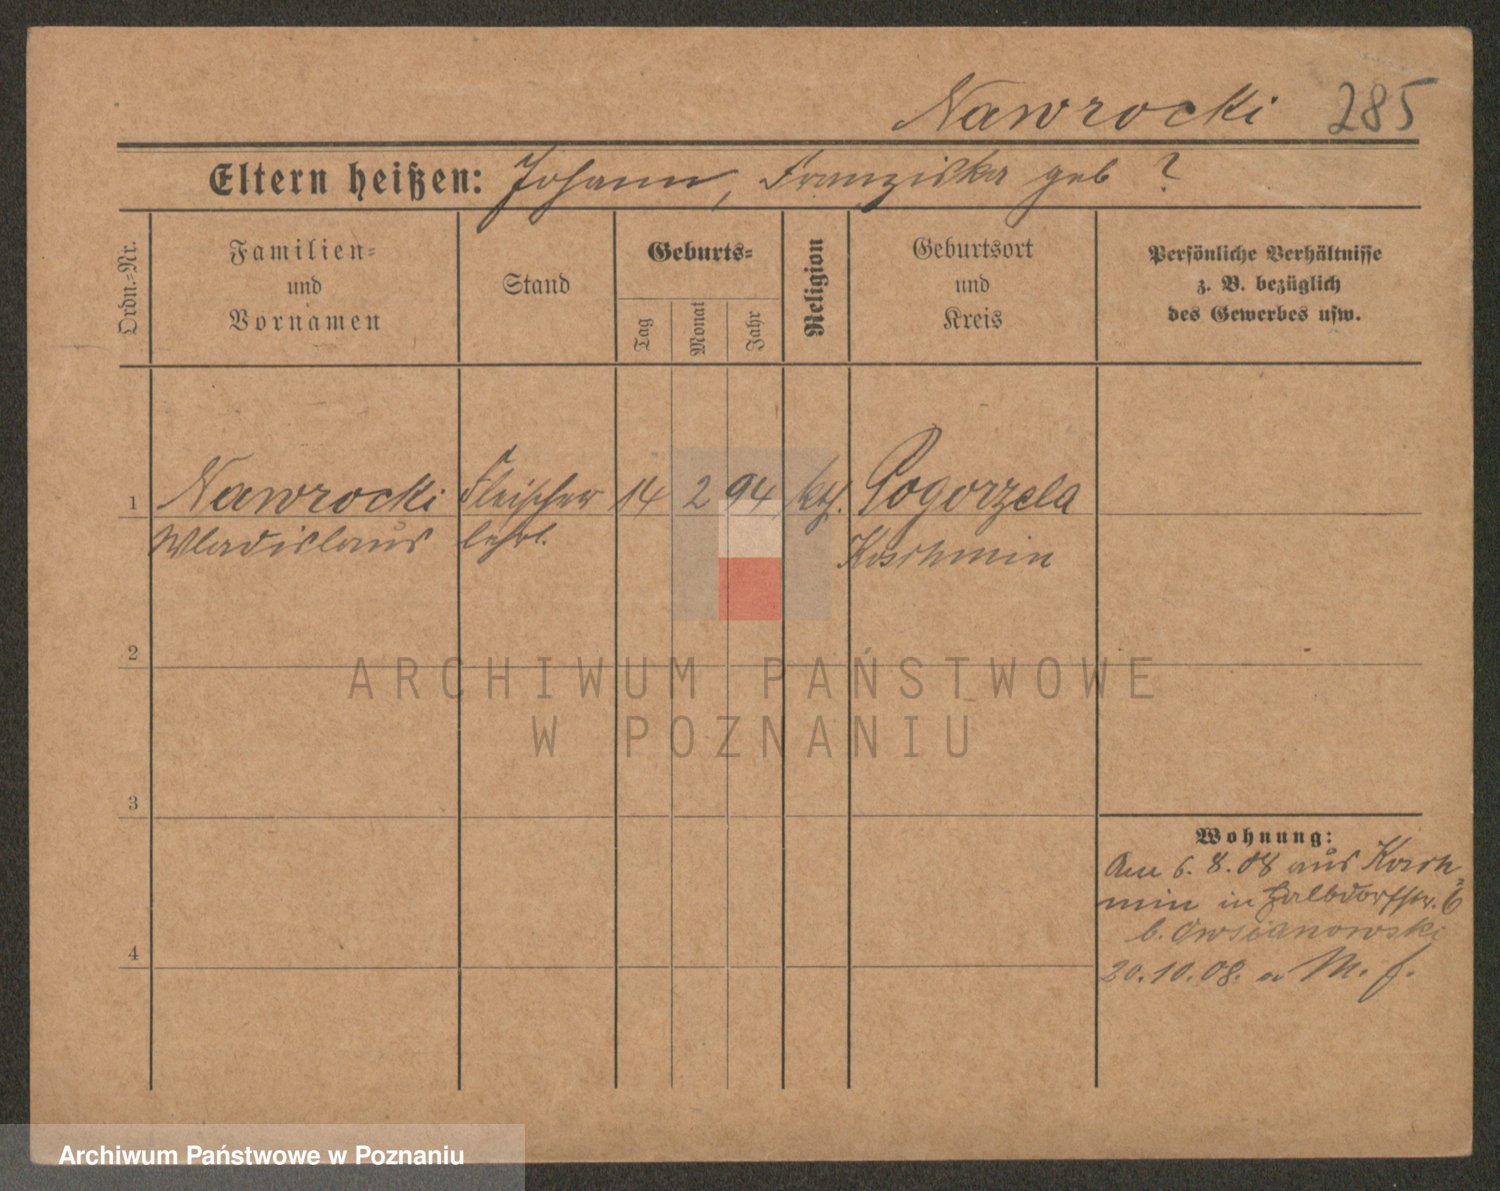 Nawrocki 285
Eltern heißen: Johann, Franziska geb ?
Ordn.-Nr.
Familien-
und
Vornamen
Stand
Geburts-
Tag
Monat
Jahr
Religion
Geburtsort
und
Kreis
Persönliche Verhältnisse
z. B. bezüglich
des Gewerbes usw.
1 Nawrocki Fleischer 14 2 94 kth. Pogorzela
Wladislaus lehrl. Koschmin
2
3
4
Wohnung:
Am 6. 8. 08 aus Kosch-
min in Halbdorfstr. 6
b. Owsianowski
20.10.08. n M. f.
ARCHIWUM PAŃSTWOWE
W POZNANIU
Archiwum Państwowe w Poznaniu